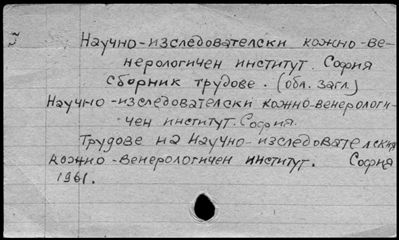 I Научно-изследователски кожно-ве-
нерологичен институт. София
Сборник трудове. (обл. загл.)
Научно-изследователски кожно-венерологи-
чен институт. София.
Трудове на научно-изследователския
кожно-венерологичен институт. София
1961.